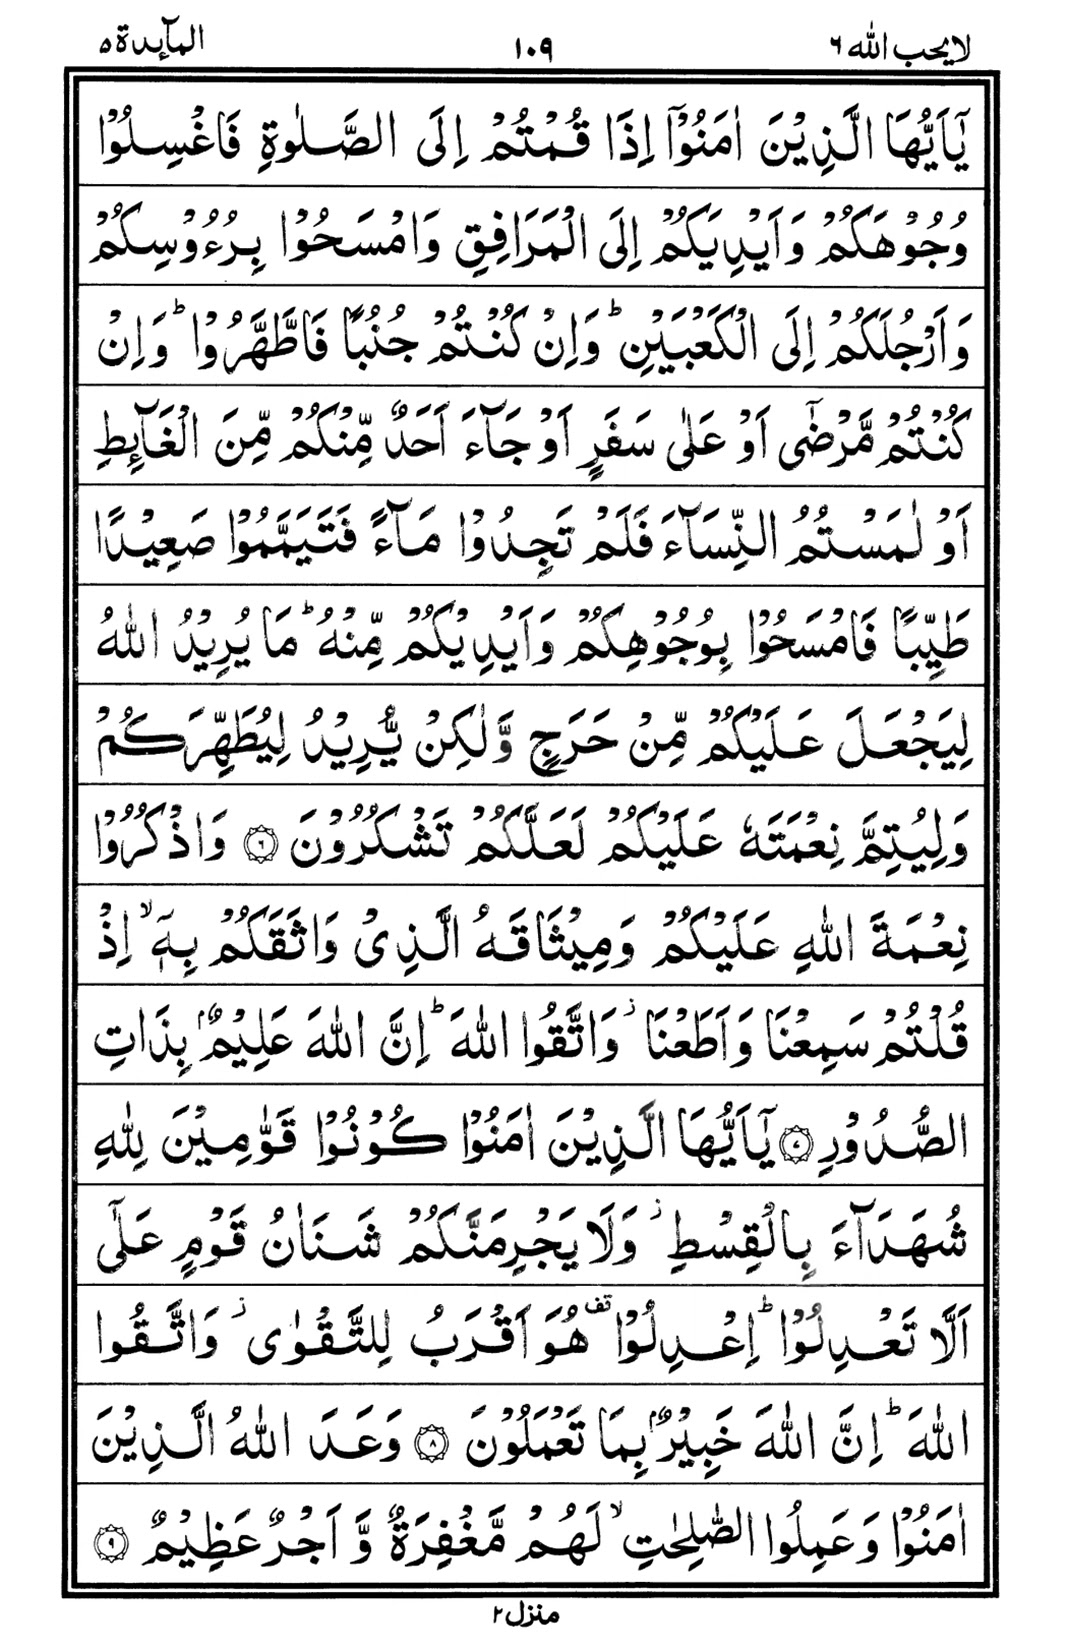 لايحب الله ٦ ١٠٩ المآىِٕدة ٥
يٰۤاَيُّهَا الَّذِيْنَ اٰمَنُوْۤا اِذَا قُمْتُمْ اِلَى الصَّلٰوةِ فَاغْسِلُوْا
وُجُوْهَكُمْ وَاَيْدِيَكُمْ اِلَى الْمَرَافِقِ وَامْسَحُوْا بِرُءُوْسِكُمْ
وَاَرْجُلَكُمْ اِلَى الْكَعْبَيْنِ ؕ وَاِنْ كُنْتُمْ جُنُبًا فَاطَّهَّرُوْا ؕ وَاِنْ
كُنْتُمْ مَّرْضٰۤى اَوْ عَلٰى سَفَرٍ اَوْ جَآءَ اَحَدٌ مِّنْكُمْ مِّنَ الْغَآىِٕطِ
اَوْ لٰمَسْتُمُ النِّسَآءَ فَلَمْ تَجِدُوْا مَآءً فَتَيَمَّمُوْا صَعِيْدًا
طَيِّبًا فَامْسَحُوْا بِوُجُوْهِكُمْ وَاَيْدِيْكُمْ مِّنْهُ ؕ مَا يُرِيْدُ اللّٰهُ
لِيَجْعَلَ عَلَيْكُمْ مِّنْ حَرَجٍ وَّلٰكِنْ يُّرِيْدُ لِيُطَهِّرَكُمْ
وَلِيُتِمَّ نِعْمَتَهٗ عَلَيْكُمْ لَعَلَّكُمْ تَشْكُرُوْنَ ۝٦ وَاذْكُرُوْا
نِعْمَةَ اللّٰهِ عَلَيْكُمْ وَمِيْثَاقَهُ الَّذِىْ وَاثَقَكُمْ بِهٖۤ ۙ اِذْ
قُلْتُمْ سَمِعْنَا وَاَطَعْنَا ؗ وَاتَّقُوا اللّٰهَ ؕ اِنَّ اللّٰهَ عَلِيْمٌۢ بِذَاتِ
الصُّدُوْرِ ۝٧ يٰۤاَيُّهَا الَّذِيْنَ اٰمَنُوْا كُوْنُوْا قَوّٰمِيْنَ لِلّٰهِ
شُهَدَآءَ بِالْقِسْطِ ؗ وَلَا يَجْرِمَنَّكُمْ شَنَاٰنُ قَوْمٍ عَلٰۤى
اَلَّا تَعْدِلُوْا ؕ اِعْدِلُوْا قف هُوَ اَقْرَبُ لِلتَّقْوٰى ؗ وَاتَّقُوا
اللّٰهَ ؕ اِنَّ اللّٰهَ خَبِيْرٌۢ بِمَا تَعْمَلُوْنَ ۝٨ وَعَدَ اللّٰهُ الَّذِيْنَ
اٰمَنُوْا وَعَمِلُوا الصّٰلِحٰتِ ۙ لَهُمْ مَّغْفِرَةٌ وَّاَجْرٌ عَظِيْمٌ ۝٩
منزل ٢